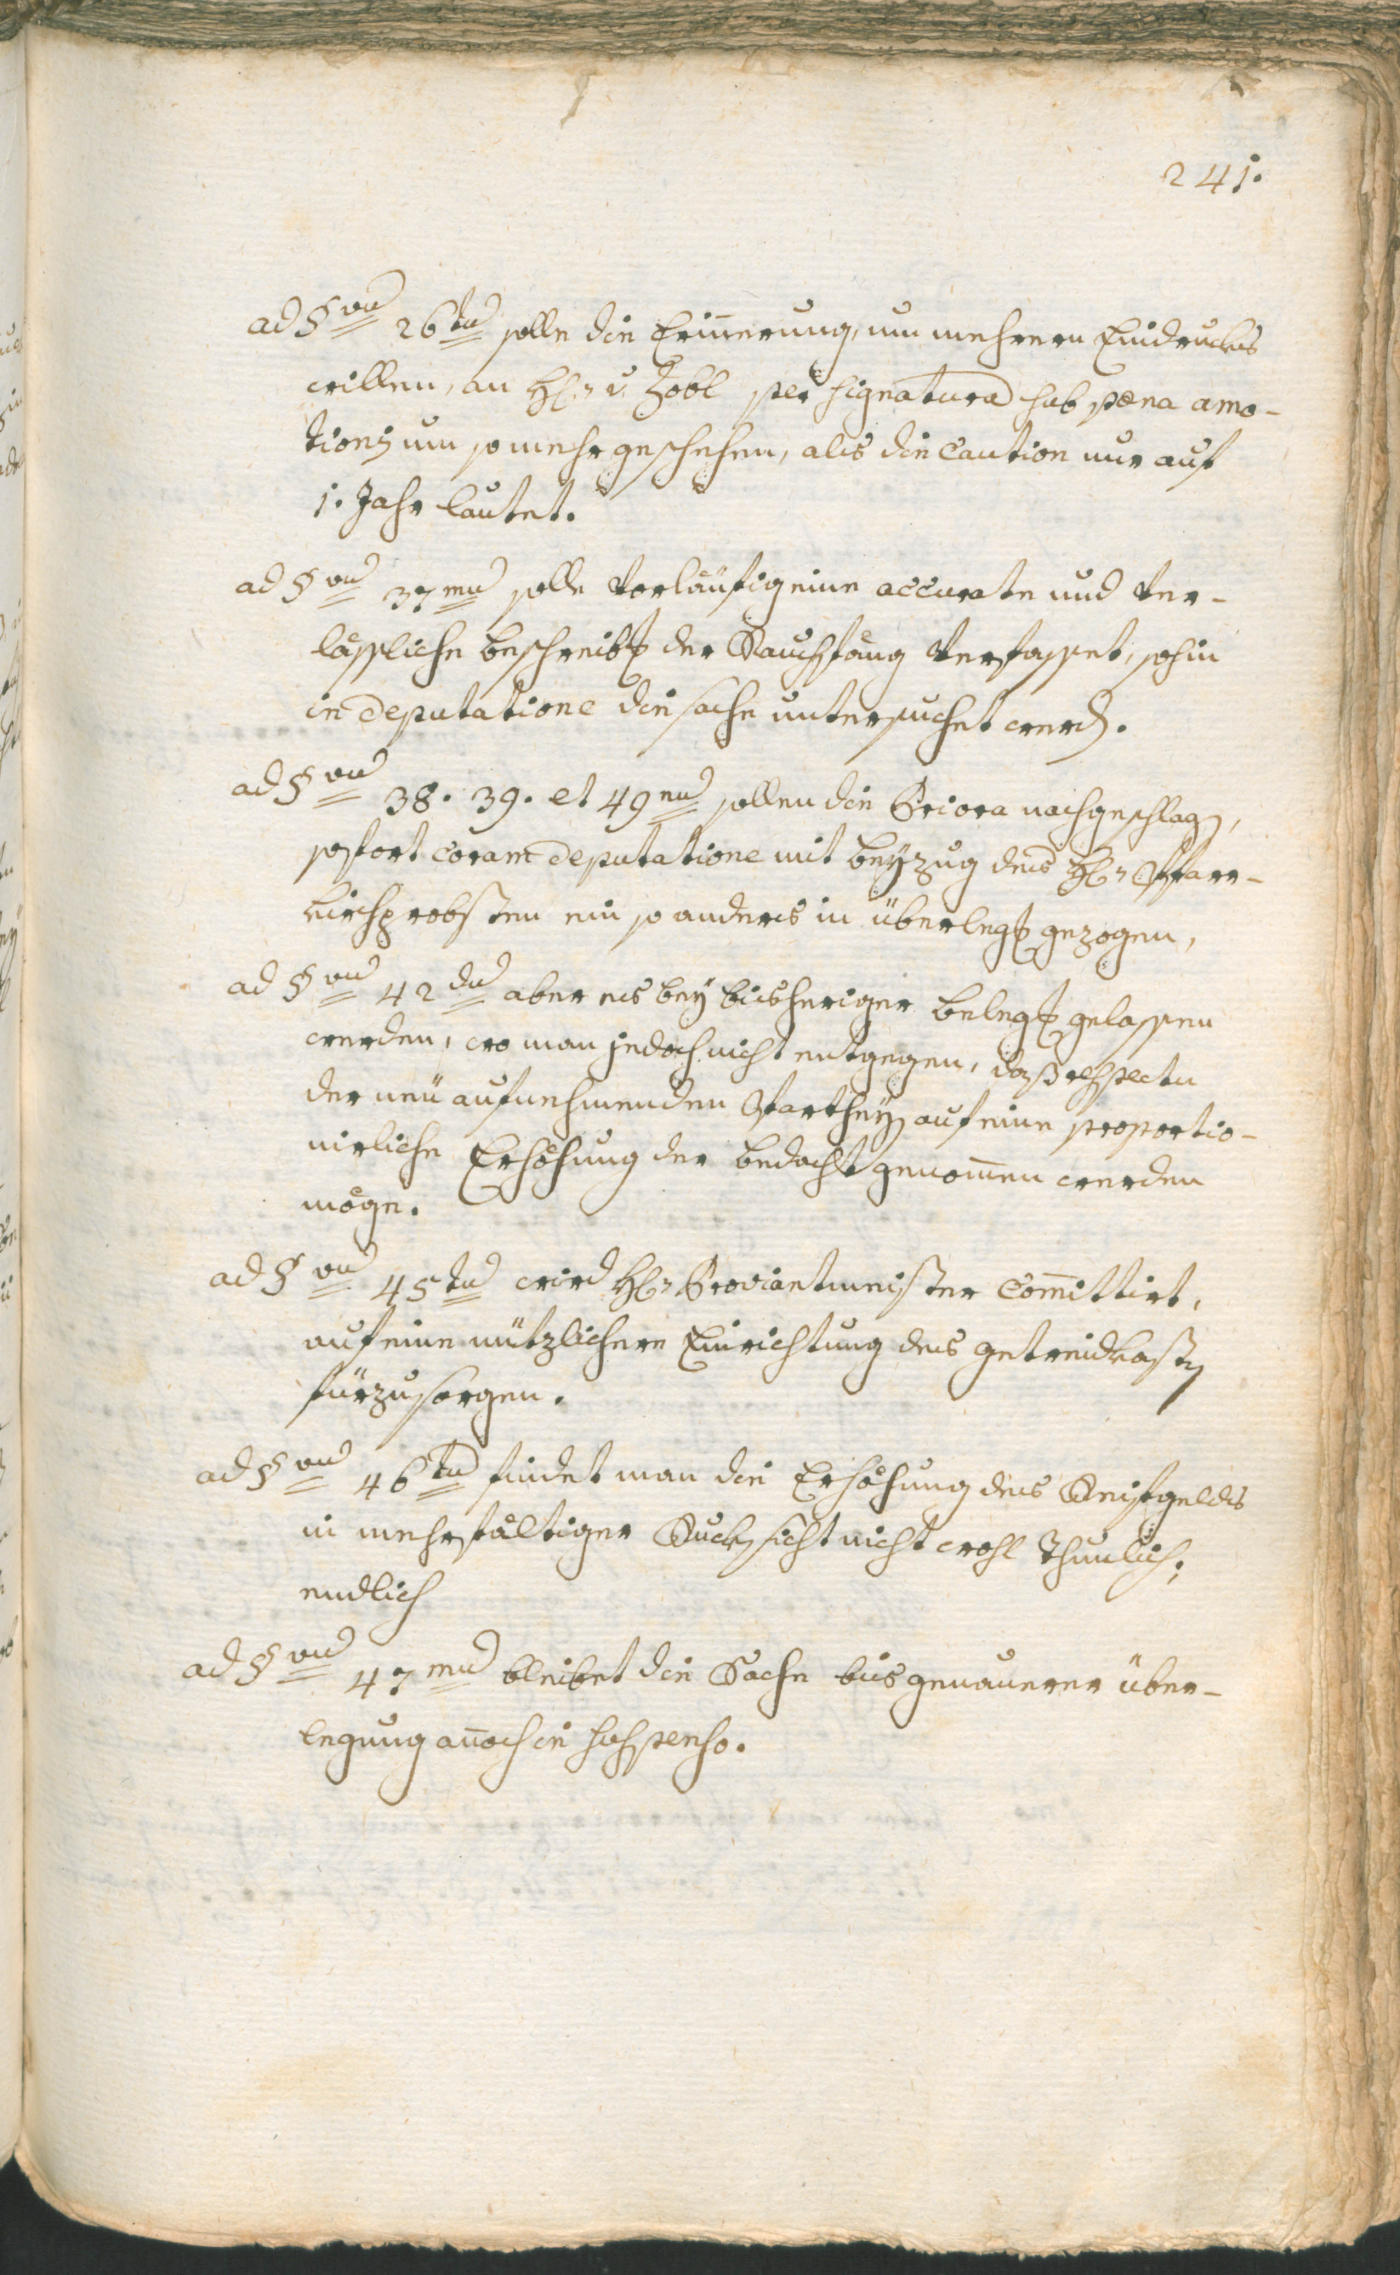 241.
ad §vu 26tu solle die Erinnerung, um mehrern Eindruckes
willen, an H: v. Zobl per signatura sub pœna amo-
tionis um so mehr geschehen, als die Caution nur auf
1. Jahr lautet.
ad §vu 37mu solle vorläufig eine accurate und ver-
lässliche beschreibg der Rauchfäng verfasset, sohin
in Deputatione die sache untersuchet werd.
ad §vu 38. 39. et 49nu sollen die Priora nachgeschlag,
sofort coram Deputatione mit beÿzug des H: Pfarr-
kirchprobsten ein so anders in überlegg gezogen,
ad §vu 42du aber es beÿ bisheriger belegg gelassen
werden, wo man jedoch nicht entgegen, daß respectu
der neü aufnehmenden Partheÿ auf eine proportio-
nirliche Erhöhung der bedacht genomen werden
möge.
ad §vu 45tu wird H: Proviantmeister Comittirt,
auf eine nützlichere Einrichtung des getreidkasten
fürzusorgen.
ad §vu 46tu findet man die Erhöhung des Reisgeldes
in mehrfältiger Rucksicht nicht wohl thunlich;
endlich
ad §vu 47mu bleibet die Sache bis genauerer über-
legung anoch in suspenso.